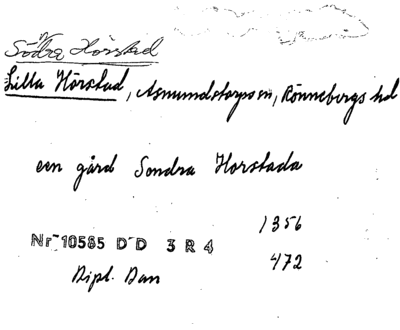 Södra Hörstad
Lilla Hörstad, Asmundstorps sn, Rönnebergs hd
een gård Sondra Horstada
1356
Nr 10585 D D 3 R 4
472
Dipl. Dan